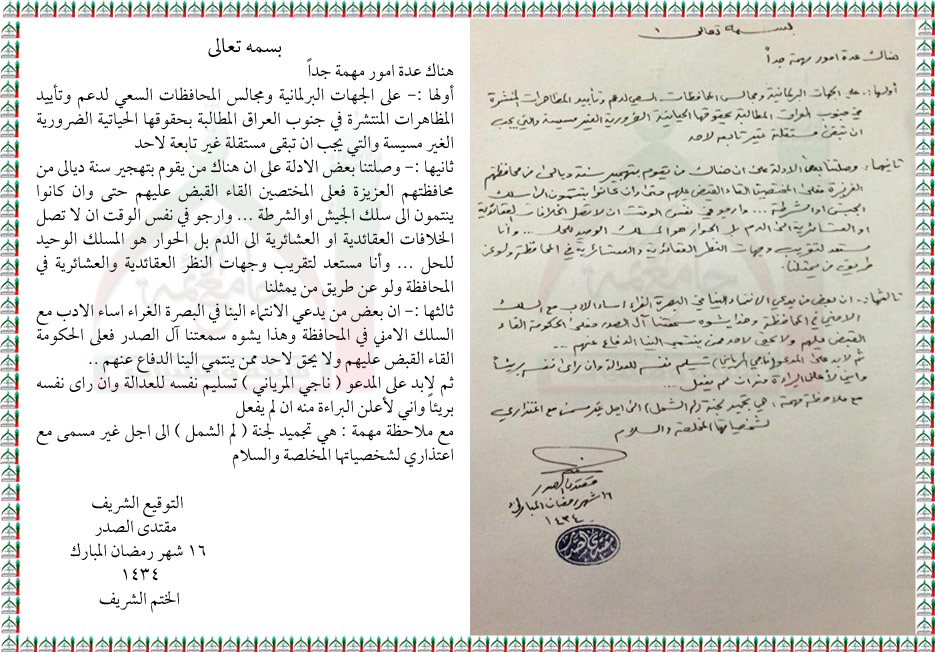 بسمه تعالى
هناك عدة امور مهمة جداً
أولها :- على الجهات البرلمانية ومجالس المحافظات السعي لدعم وتأييد
المظاهرات المنتشرة في جنوب العراق المطالبة بحقوقها الحياتية الضرورية
الغير مسيسة والتي يجب ان تبقى مستقلة غير تابعة لاحد
ثانيها :- وصلتنا بعض الادلة على ان هناك من يقوم بتهجير سنة ديالى من
محافظتهم العزيزة فعلى المختصين القاء القبض عليهم حتى وان كانوا
ينتمون الى سلك الجيش اوالشرطة ... وارجو في نفس الوقت ان لا تصل
الخلافات العقائدية او العشائرية الى الدم بل الحوار هو المسلك الوحيد
للحل ... وأنا مستعد لتقريب وجهات النظر العقائدية والعشائرية في
المحافظة ولو عن طريق من يمثلنا
ثالثها :- ان بعض من يدعي الانتماء الينا في البصرة الغراء اساء الادب مع
السلك الامني في المحافظة وهذا يشوه سمعتنا آل الصدر فعلى الحكومة
القاء القبض عليهم ولا يحق لاحد ممن ينتمي الينا الدفاع عنهم ..
ثم لابد على المدعو ( ناجي المرياني ) تسليم نفسه للعدالة وان راى نفسه
بريئاً واني لأعلن البراءة منه ان لم يفعل
مع ملاحظة مهمة : هي تجميد لجنة ( لم الشمل ) الى اجل غير مسمى مع
اعتذاري لشخصياتها المخلصة والسلام
التوقيع الشريف
مقتدى الصدر
١٦ شهر رمضان المبارك
١٤٣٤
الختم الشريف
بسمه تعالى
هناك عدة امور مهمة جداً
أولها :- على الجهات البرلمانية ومجالس المحافظات السعي لدعم وتأييد المظاهرات المنتشرة
في جنوب العراق المطالبة بحقوقها الحياتية الضرورية الغير مسيسة والتي يجب
ان تبقى مستقلة غير تابعة لاحد
ثانيها :- وصلتنا بعض الادلة على ان هناك من يقوم بتهجير سنة ديالى من محافظتهم
العزيزة فعلى المختصين القاء القبض عليهم حتى وان كانوا ينتمون الى سلك
الجيش او الشرطة ... وارجو في نفس الوقت ان لا تصل الخلافات العقائدية
او العشائرية الى الدم بل الحوار هو المسلك الوحيد للحل ... وأنا
مستعد لتقريب وجهات النظر العقائدية والعشائرية في المحافظة ولو عن
طريق من يمثلنا
ثالثها :- ان بعض من يدعي الانتماء الينا في البصرة الغراء اساء الادب مع السلك
الامني في المحافظة وهذا يشوه سمعتنا آل الصدر فعلى الحكومة القاء
القبض عليهم ولا يحق لاحد ممن ينتمي الينا الدفاع عنهم ...
ثم لابد على المدعو (ناجي المرياني) تسليم نفسه للعدالة وان راى نفسه بريئاً
واني لأعلن البراءة منه ان لم يفعل ...
مع ملاحظة مهمة : هي تجميد لجنة (لم الشمل) الى اجل غير مسمى مع اعتذاري
لشخصياتها المخلصة والسلام
مقتدى الصدر
١٦ شهر رمضان المبارك
١٤٣٤
مقتدى الصدر